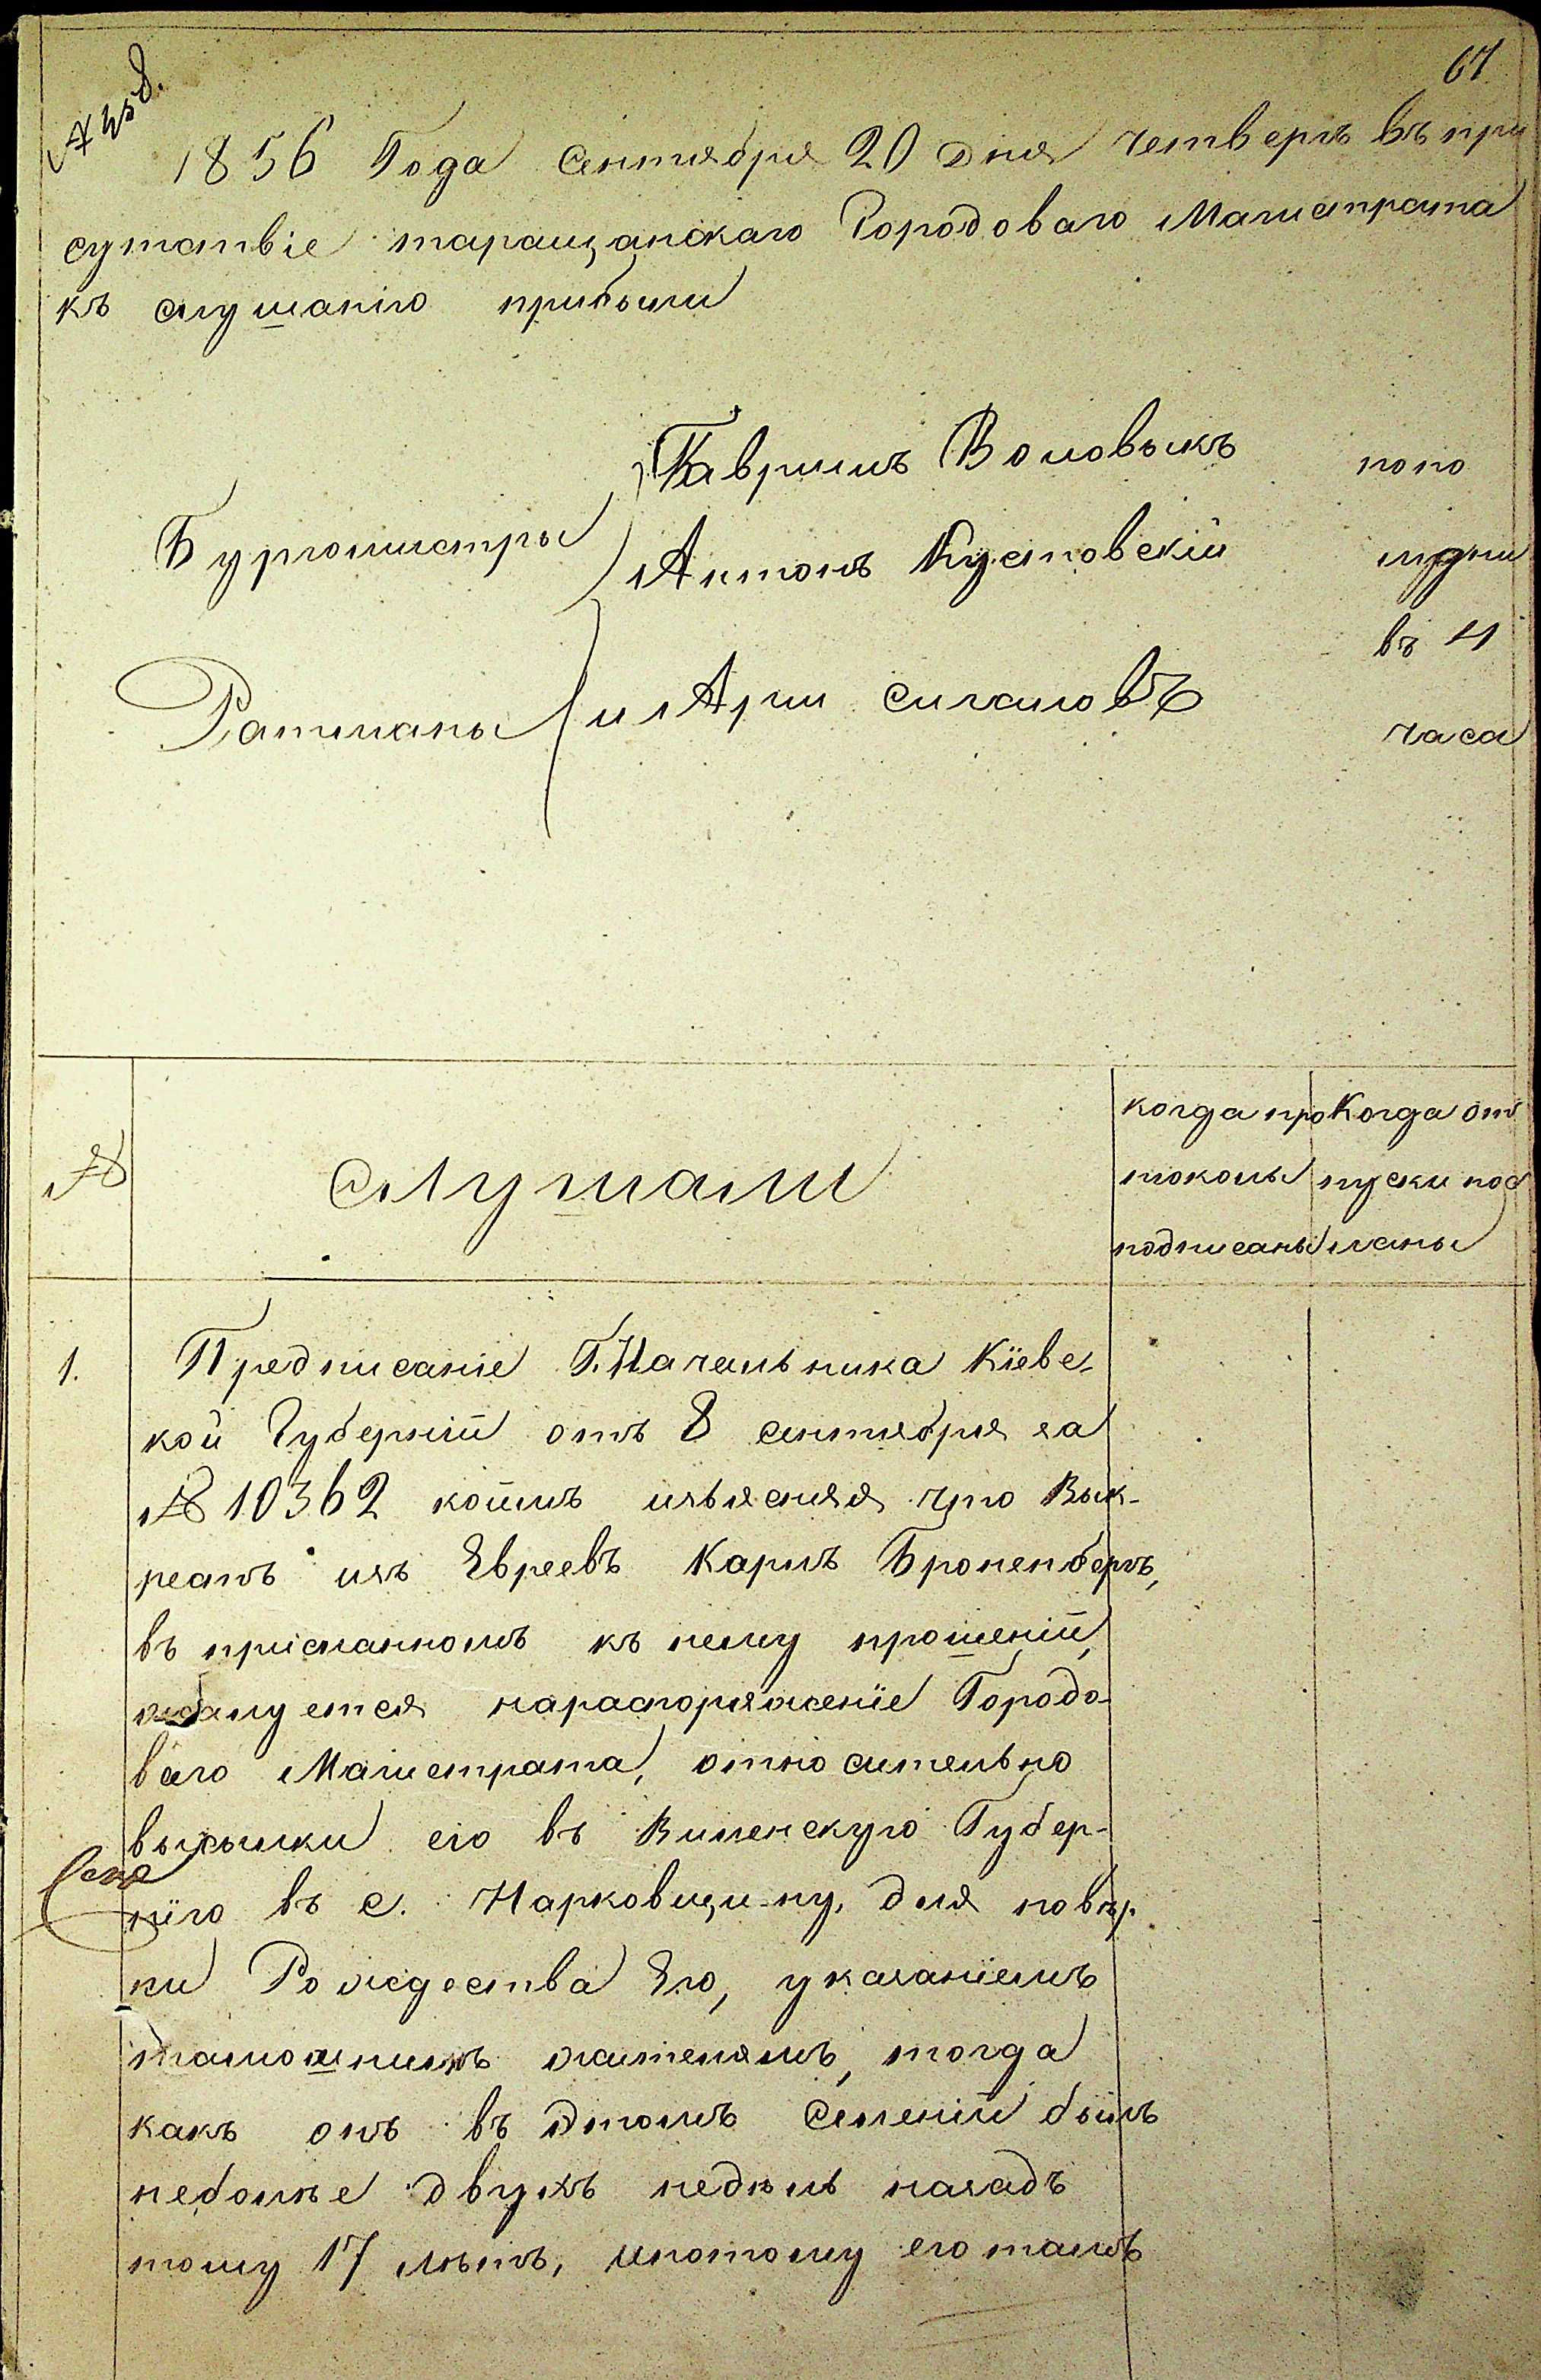 67
1856 Года Сентября 20 Дня четвергъ Въ при
сутствіе таращанскаго Городоваго Магистрата
къ слушанію прибыли
Гавріилъ Воловыкъ
попо
Бургомистры
Антонъ Кустовскій
лудни
въ 4
Ратманы
и Арии Сигаловъ
часа
№
Слушали
когда про
токолы
подписаны
Когда от
пуски пос
ланы
1.
Предписаніе Г. Начальника Кіевс-
кой Губерніи отъ 8 сентября за
№ 10362 коимъ изъясняя что Вык-
рестъ изъ Евреевъ Карлъ Броненбергъ,
въ присланномъ къ нему прошеніи,
жалуется нараспоряженіе Городо-
ваго Магистрата, относительно
высылки его въ Виленскую Губер-
нію въ с. Нарковщину, для повѣр-
ки Рождества Его, указаніемъ
тамошнимъ жителямъ, тогда
какъ онъ въ Этомъ Селеніи былъ
неболѣе двухъ недѣль назадъ
тому 17 лѣтъ, ипотому его тамъ